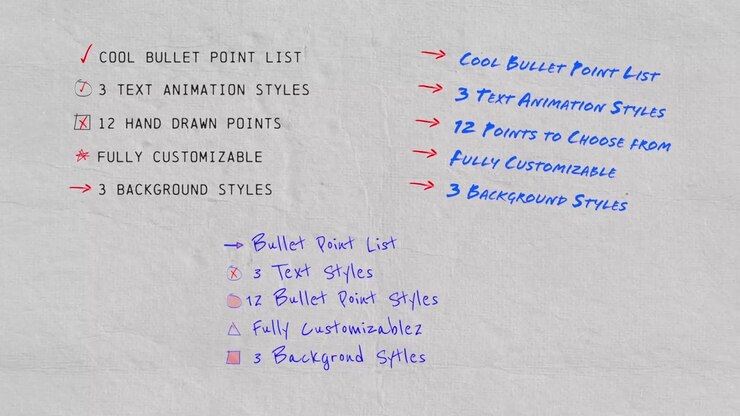 COOL BULLET POINT LIST
3 TEXT ANIMATION STYLES
12 HAND DRAWN POINTS
FULLY CUSTOMIZABLE
3 BACKGROUND STYLES
COOL BULLET POINT LIST
3 TEXT ANIMATION STYLES
12 POINTS TO CHOOSE FROM
FULLY CUSTOMIZABLE
3 BACKGROUND STYLES
Bullet Point List
3 Text Styles
12 Bullet Point Styles
Fully Customizablez
3 Backgrond Sytles